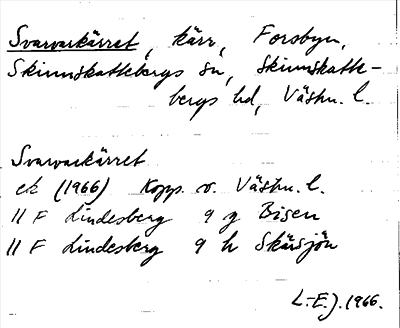 Svarvarkärret, kärr, Forsbyn,
Skinnskattebergs sn, Skinnskatte-
bergs hd, Västm. l.
Svarvarkärret
ek (1966) Kopp. o. Västm. l.
11 F Lindesberg 9 g Bisen
11 F Lindesberg 9 h Skärsjön
L.-E. J. 1966.